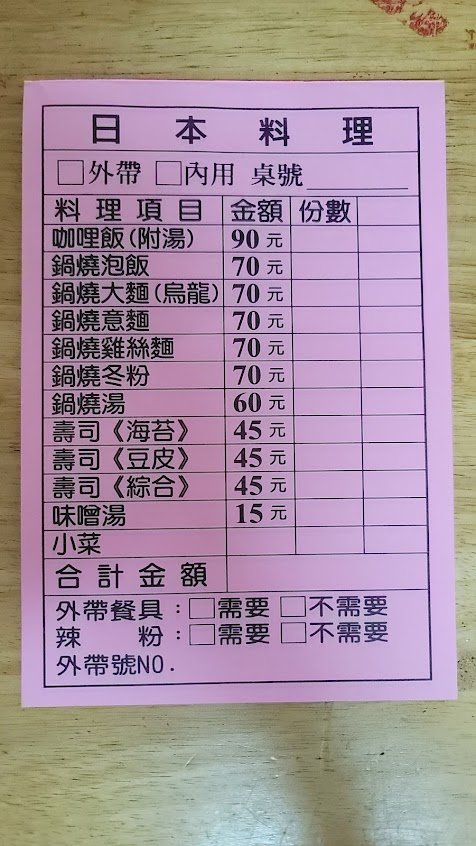 日本料理
□外帶 □內用 桌號________
料理項目 金額 份數
咖哩飯(附湯) 90元
鍋燒泡飯 70元
鍋燒大麵(烏龍) 70元
鍋燒意麵 70元
鍋燒雞絲麵 70元
鍋燒冬粉 70元
鍋燒湯 60元
壽司《海苔》 45元
壽司《豆皮》 45元
壽司《綜合》 45元
味噌湯 15元
小菜
合計金額
外帶餐具:□需要 □不需要
辣粉:□需要 □不需要
外帶號NO.